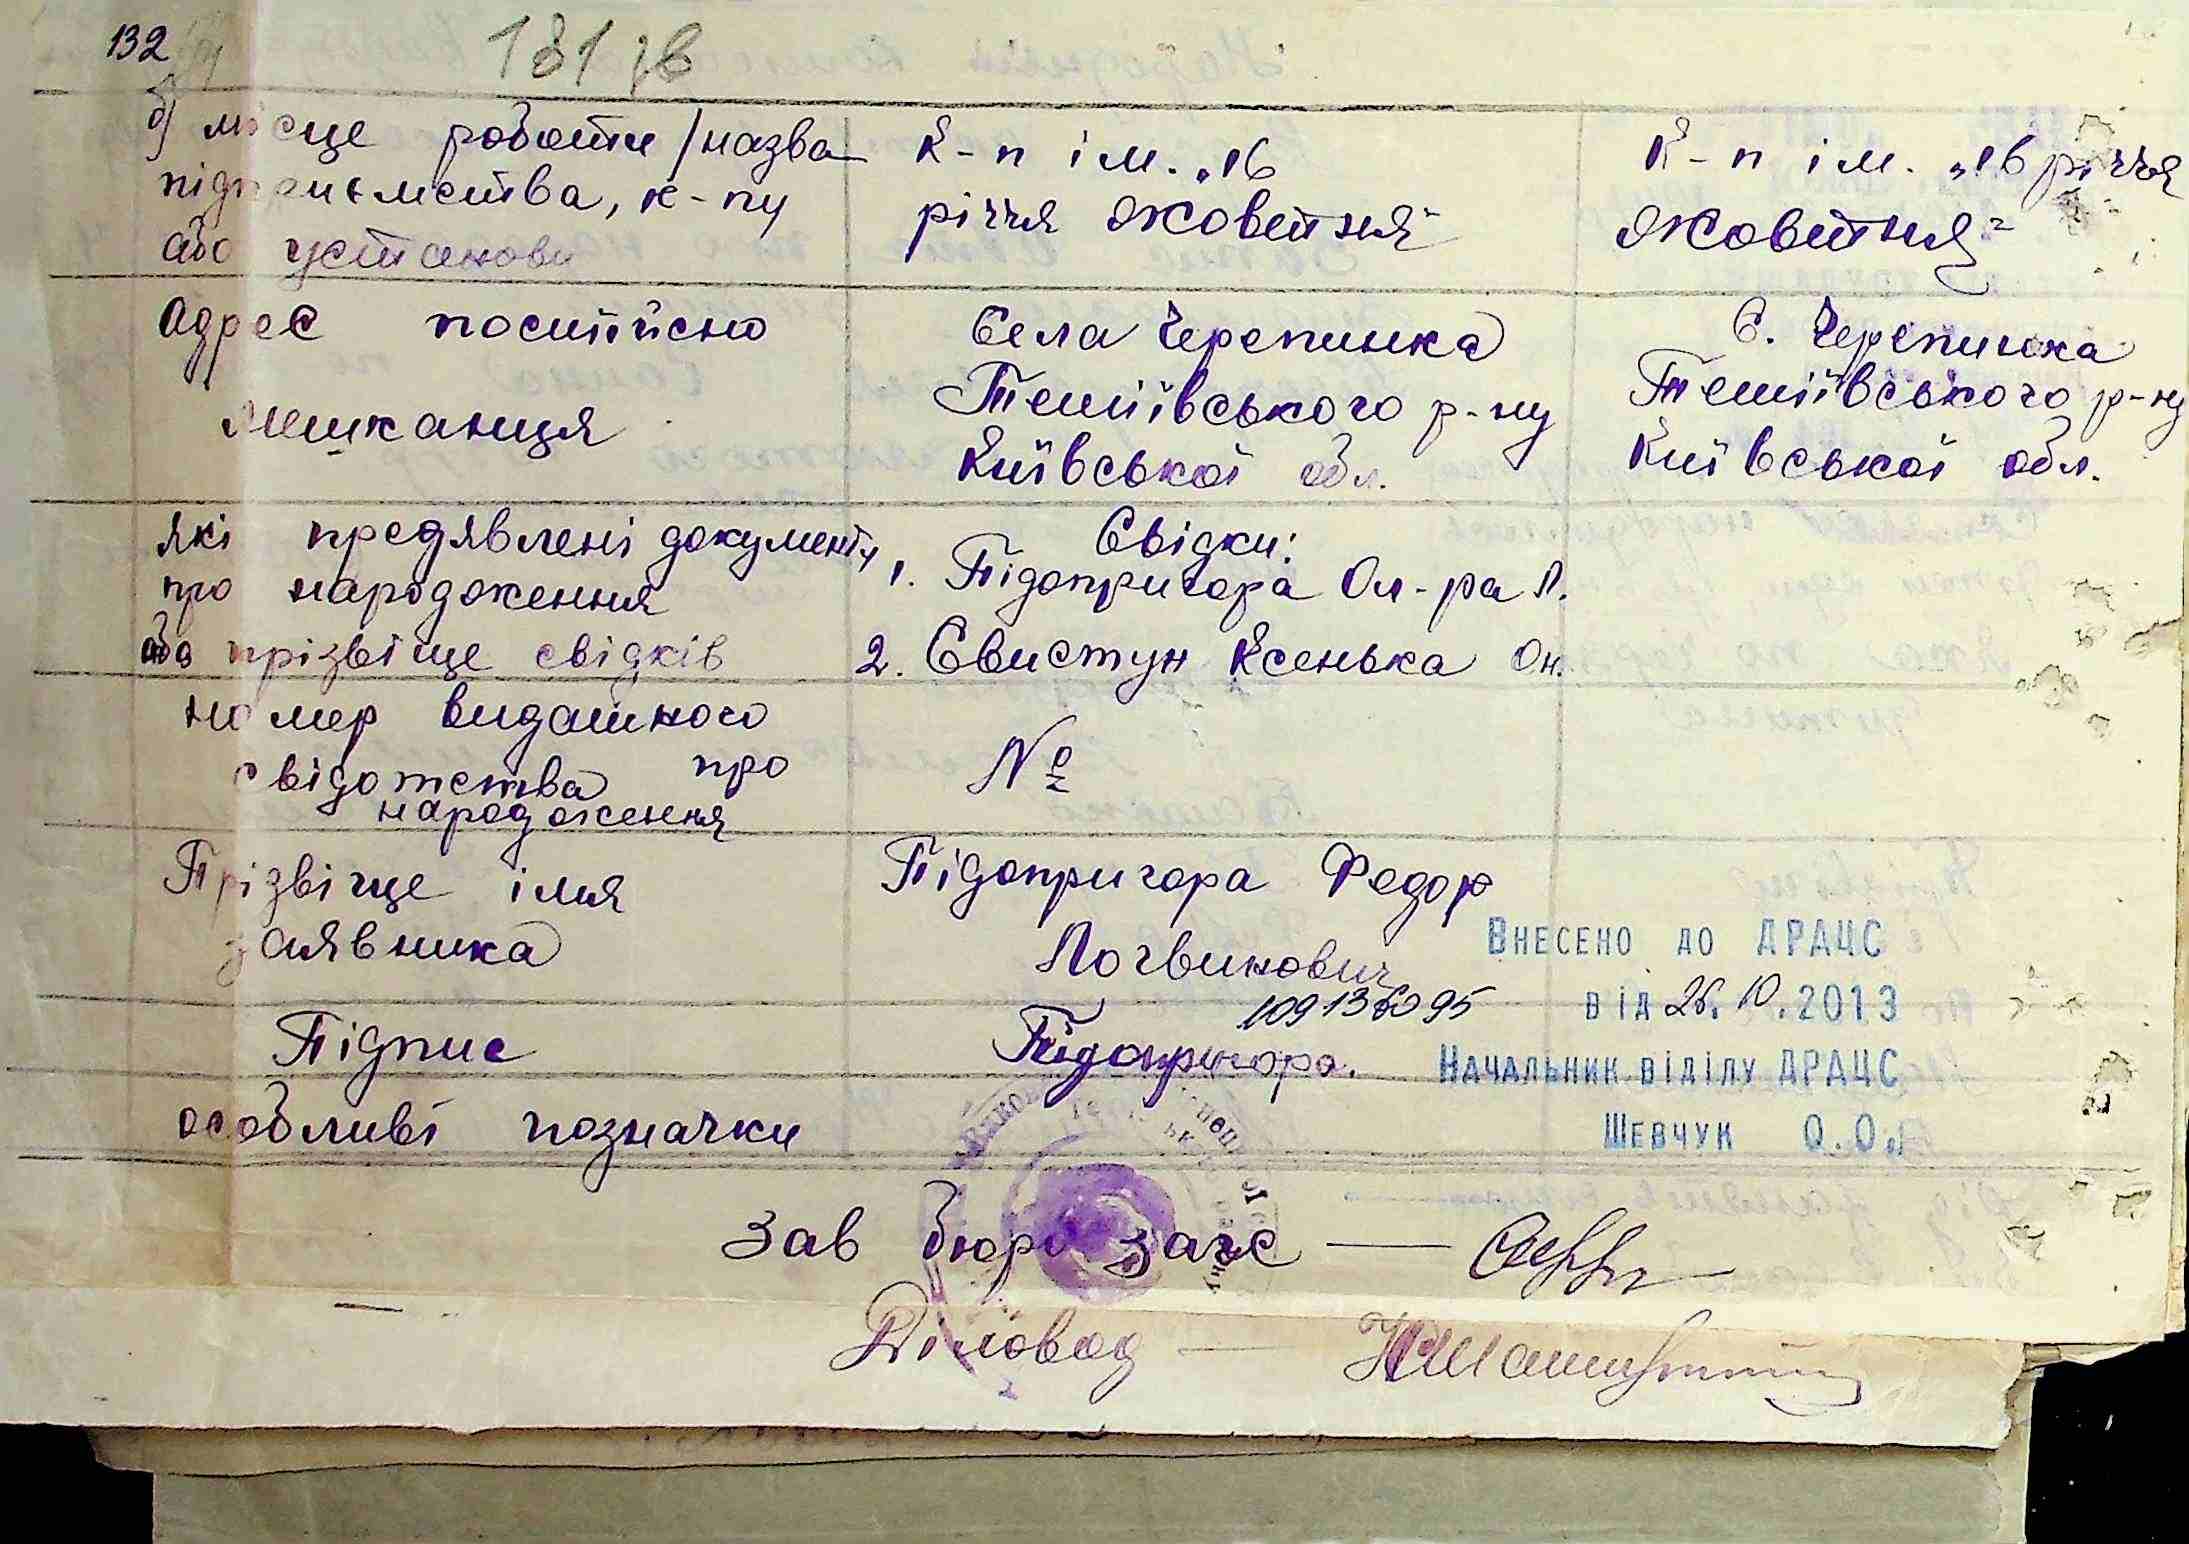 132
131 зв
б) місце роботи /назва
підприємства, к-пу
або установи
К-п ім. „16
річчя Жовтня"
К-п ім. „16 річчя
Жовтня"
Адрес постійно
мешканця
Села Черепинка
Тетіївського р-ну
Київської обл.
С. Черепинка
Тетіївського р-ну
Київської обл.
які предявлені документи
про народження
або прізвіще свідків
Свідки:
1. Підопригора Ол-ра Л.
2. Свистун Ксенька Он.
номер виданного
свідотства про
народження
№
Прізвіще імя
заявника
Підопригора Федор
Логвинович
Внесено до ДРАЦС
від 26.10.2013
Начальник відділу ДРАЦС
Шевчук О.О.
Підпис
Підопригора.
особливі позначки
Зав бюро загс —
Діловод —